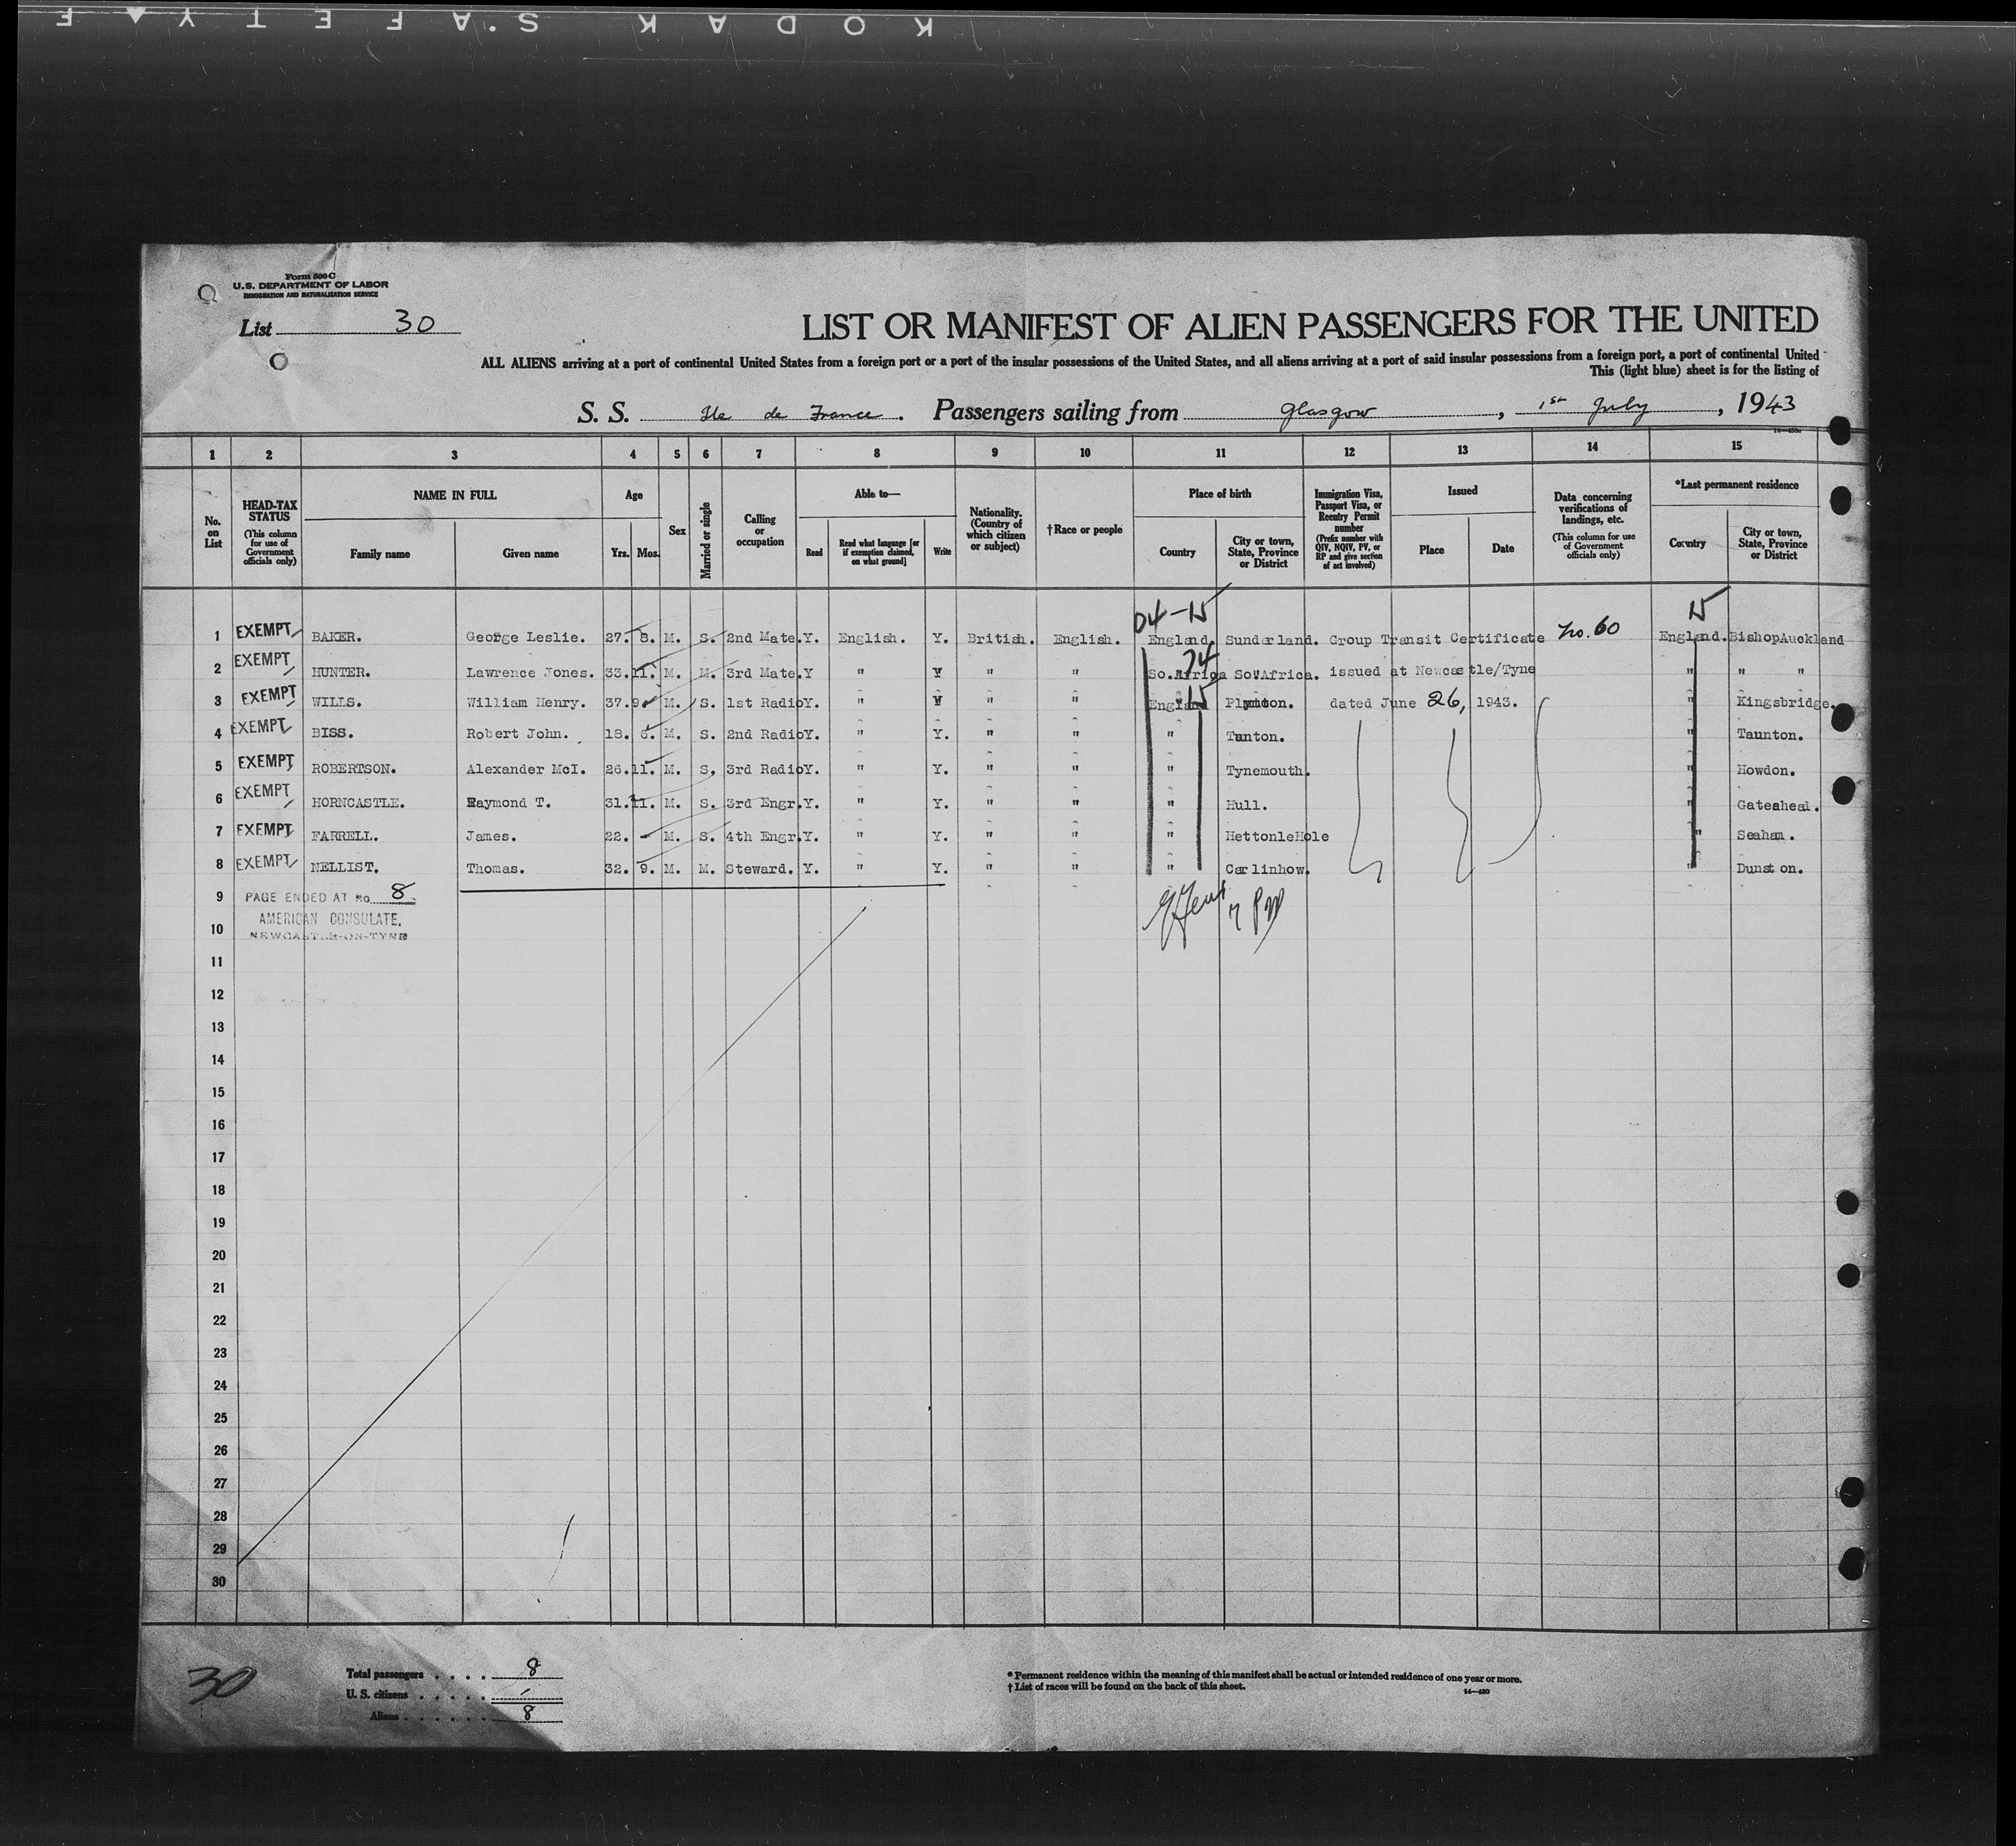 KODAK S.AFETY F
Form 500 C
U.S. DEPARTMENT OF LABOR
IMMIGRATION AND NATURALIZATION SERVICE
List 30
LIST OR MANIFEST OF ALIEN PASSENGERS FOR THE UNITED
ALL ALIENS arriving at a port of continental United States from a foreign port or a port of the insular possessions of the United States, and all aliens arriving at a port of said insular possessions from a foreign port, a port of continental United
This (light blue) sheet is for the listing of
S. S. Ile de France. Passengers sailing from Glasgow, 1st July, 1943
1 2 3 4 5 6 7 8 9 10 11 12 13 14 15
No. on List
HEAD-TAX STATUS (This column for use of Government officials only)
NAME IN FULL
Family name Given name
Age
Yrs. Mos.
Sex
Married or single
Calling or occupation
Able to—
Read Read what language [or if exemption claimed, on what ground] Write
Nationality. (Country of which citizen or subject)
†Race or people
Place of birth
Country City or town, State, Province or District
Immigration Visa, Passport Visa, or Reentry Permit number (Prefix number with QIV, NQIV, PV, or RP and give section of act involved)
Issued
Place Date
Data concerning verifications of landings, etc. (This column for use of Government officials only)
*Last permanent residence
Country City or town, State, Province or District
04-15 15
1 EXEMPT BAKER. George Leslie. 27. 8. M. S. 2nd Mate. Y. English. Y. British. English. England. Sunderland. Group Transit Certificate No. 60 England. BishopAuckland
2 EXEMPT HUNTER. Lawrence Jones. 33. 11. M. M. 3rd Mate. Y " Y " " So.Africa 74 So.Africa. issued at Newcastle/Tyne " " "
3 EXEMPT WILLS. William Henry. 37. 9 M. S. 1st Radio Y. " Y " " England 15 dated June 26, 1943. " Kingsbridge.
4 EXEMPT BISS. Robert John. 18. 6. M. S. 2nd Radio Y. " Y. " " " Tanton. " Taunton.
5 EXEMPT ROBERTSON. Alexander McI. 26. 11. M. S. 3rd Radio Y. " Y. " " " Tynemouth. " Howdon.
6 EXEMPT HORNCASTLE. Raymond T. 31. 11. M. S. 3rd Engr. Y. " Y. " " " Hull. " Gateaheal.
7 EXEMPT FARRELL. James. 22. M. S. 4th Engr. Y. " Y. " " " HettonleHole " Seaham.
8 EXEMPT NELLIST. Thomas. 32. 9. M. M. Steward. Y. " Y. " " " Carlinhow. " Dunston.
9 PAGE ENDED AT No. 8
AMERICAN CONSULATE,
10 NEWCASTLE-ON-TYNE
11
12
13
14
15
16
17
18
19
20
21
22
23
24
25
26
27
28
29
30
30
Total passengers . . . . 8
U. S. citizens . . . . . /
Aliens . . . . . . 8
* Permanent residence within the meaning of this manifest shall be actual or intended residence of one year or more.
† List of races will be found on the back of this sheet.
14—430